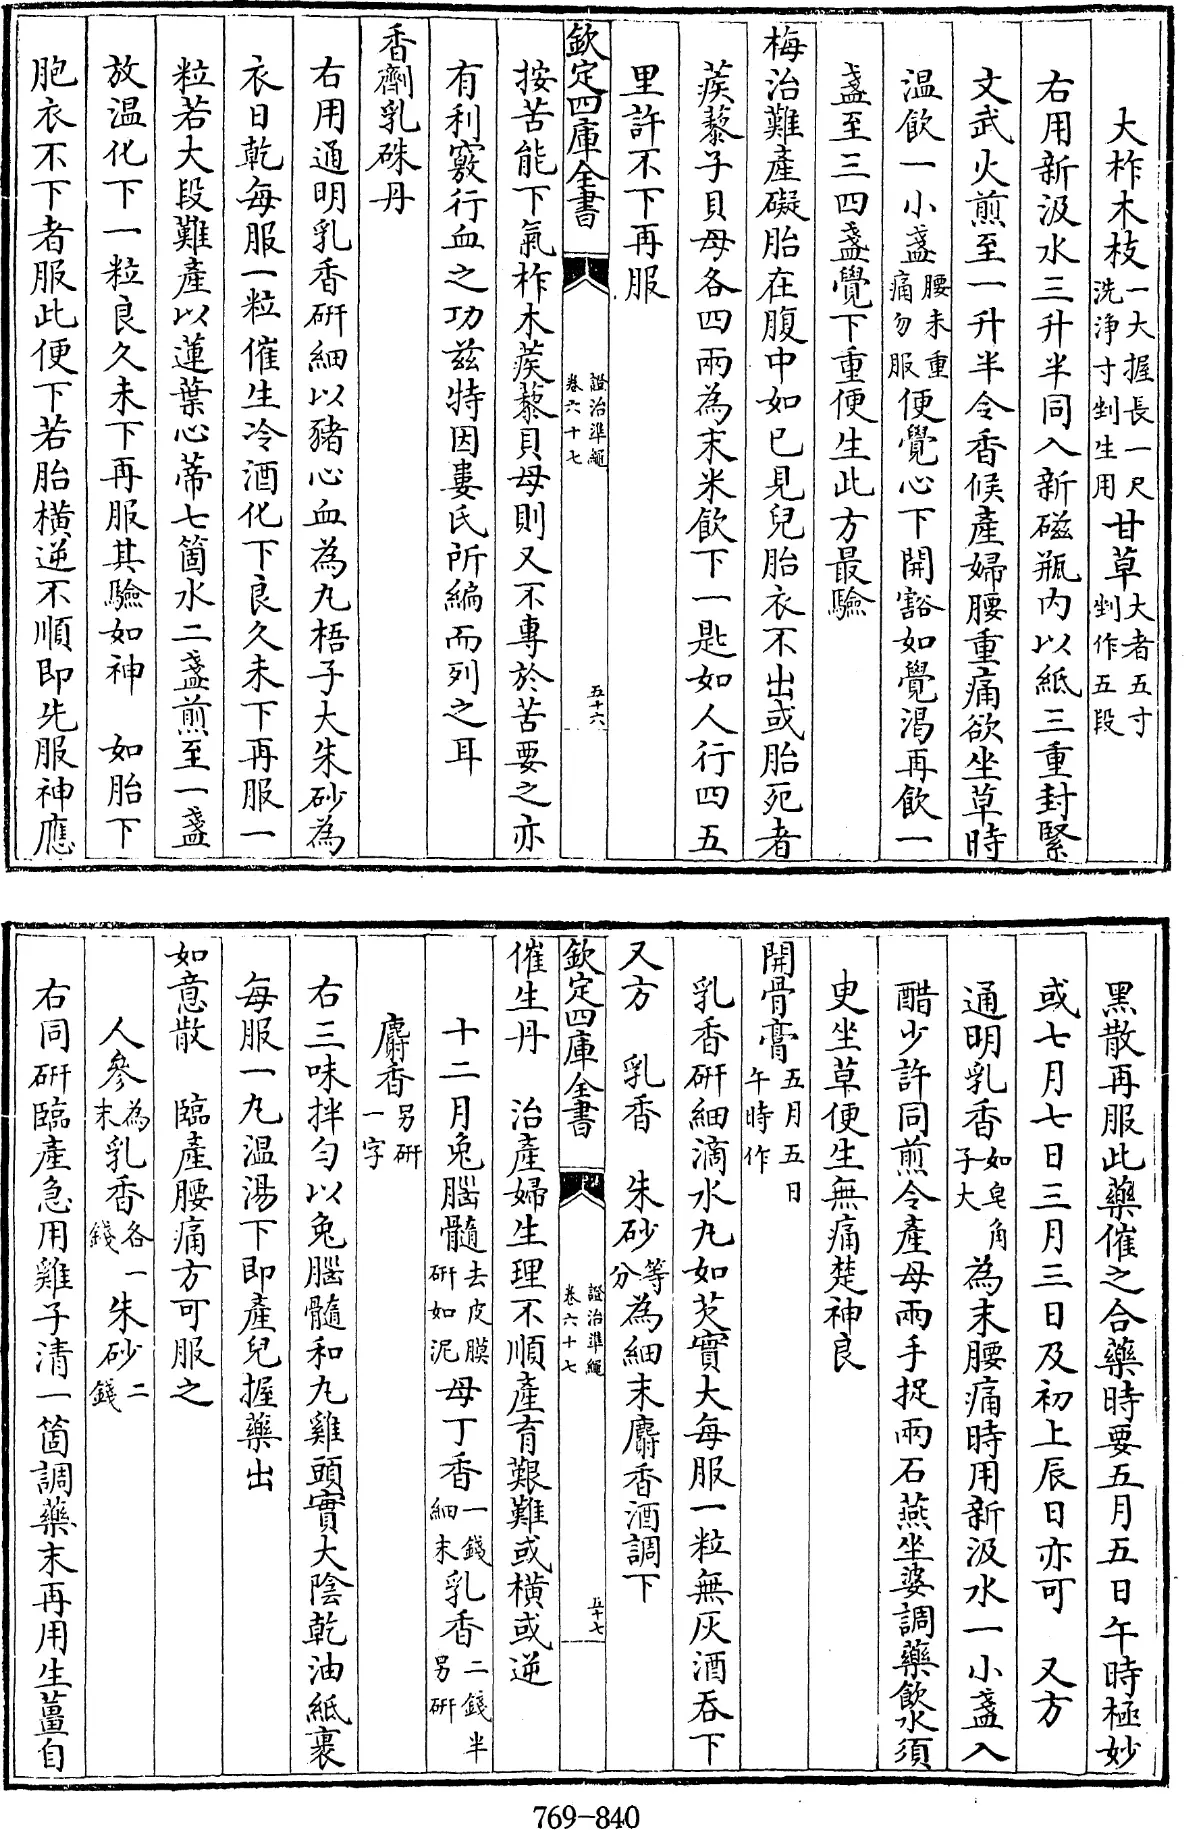 大柞木枝一大握長一尺洗浄寸剉生用甘草大者五寸剉作五段
右用新汲水三升半同入新磁瓶内以紙三重封緊
文武火煎至一升半令香候產婦腰重痛欲坐草時
温飲一小盞腰未重痛勿服便覺心下開豁如覺渴再飲一
盞至三四盞覺下重便生此方最驗
梅治難產礙胎在腹中如已見兒胎衣不出或胎死者
蒺藜子貝母各四兩為末米飲下一匙如人行四五
里許不下再服
欽定四庫全書 證治準繩 卷六十七 五十六
按苦能下氣柞木蒺藜貝母則又不專於苦要之亦
有利竅行血之功兹特因婁氏所編而列之耳
香劑乳硃丹
右用通明乳香研細以豬心血為丸梧子大朱砂為
衣日乾每服一粒催生冷酒化下良久未下再服一
粒若大段難產以蓮葉心蒂七箇水二盞煎至一盞
放温化下一粒良久未下再服其驗如神 如胎下
胞衣不下者服此便下若胎橫逆不順即先服神應
黑散再服此藥催之合藥時要五月五日午時極妙
或七月七日三月三日及初上辰日亦可 又方
通明乳香如皂角子大為末腰痛時用新汲水一小盞入
醋少許同煎令產母兩手捉兩石燕坐婆調藥飲水須
臾坐草便生無痛楚神良
開骨膏五月五日午時作
乳香研細滴水丸如芡實大每服一粒無灰酒吞下
又方 乳香 朱砂等分為細末麝香酒調下
欽定四庫全書 證治準繩 卷六十七 五十七
催生丹 治產婦生理不順產育艱難或橫或逆
十二月兔腦髓去皮膜研如泥母丁香一錢細末乳香二錢半另研
麝香另研一字
右三味拌勻以兔腦髓和丸雞頭實大陰乾油紙裹
每服一丸温湯下即產兒握藥出
如意散 臨產腰痛方可服之
人參為末乳香各一錢朱砂二錢
右同研臨產急用雞子清一箇調藥末再用生薑自
769-840